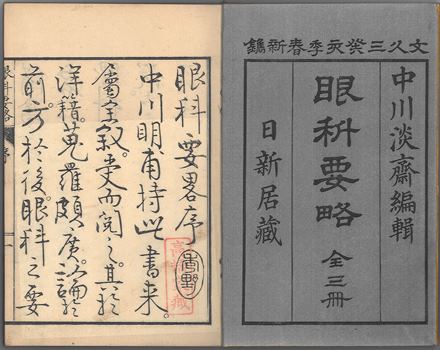 文久三癸亥季春新鐫
中川淡齋編輯
眼科要略 全三冊
日新居藏
眼科要畧序
中川明甫持此書来
屬余叙受而閲之其於
洋籍蒐羅頗廣論於
前方於後眼科之要